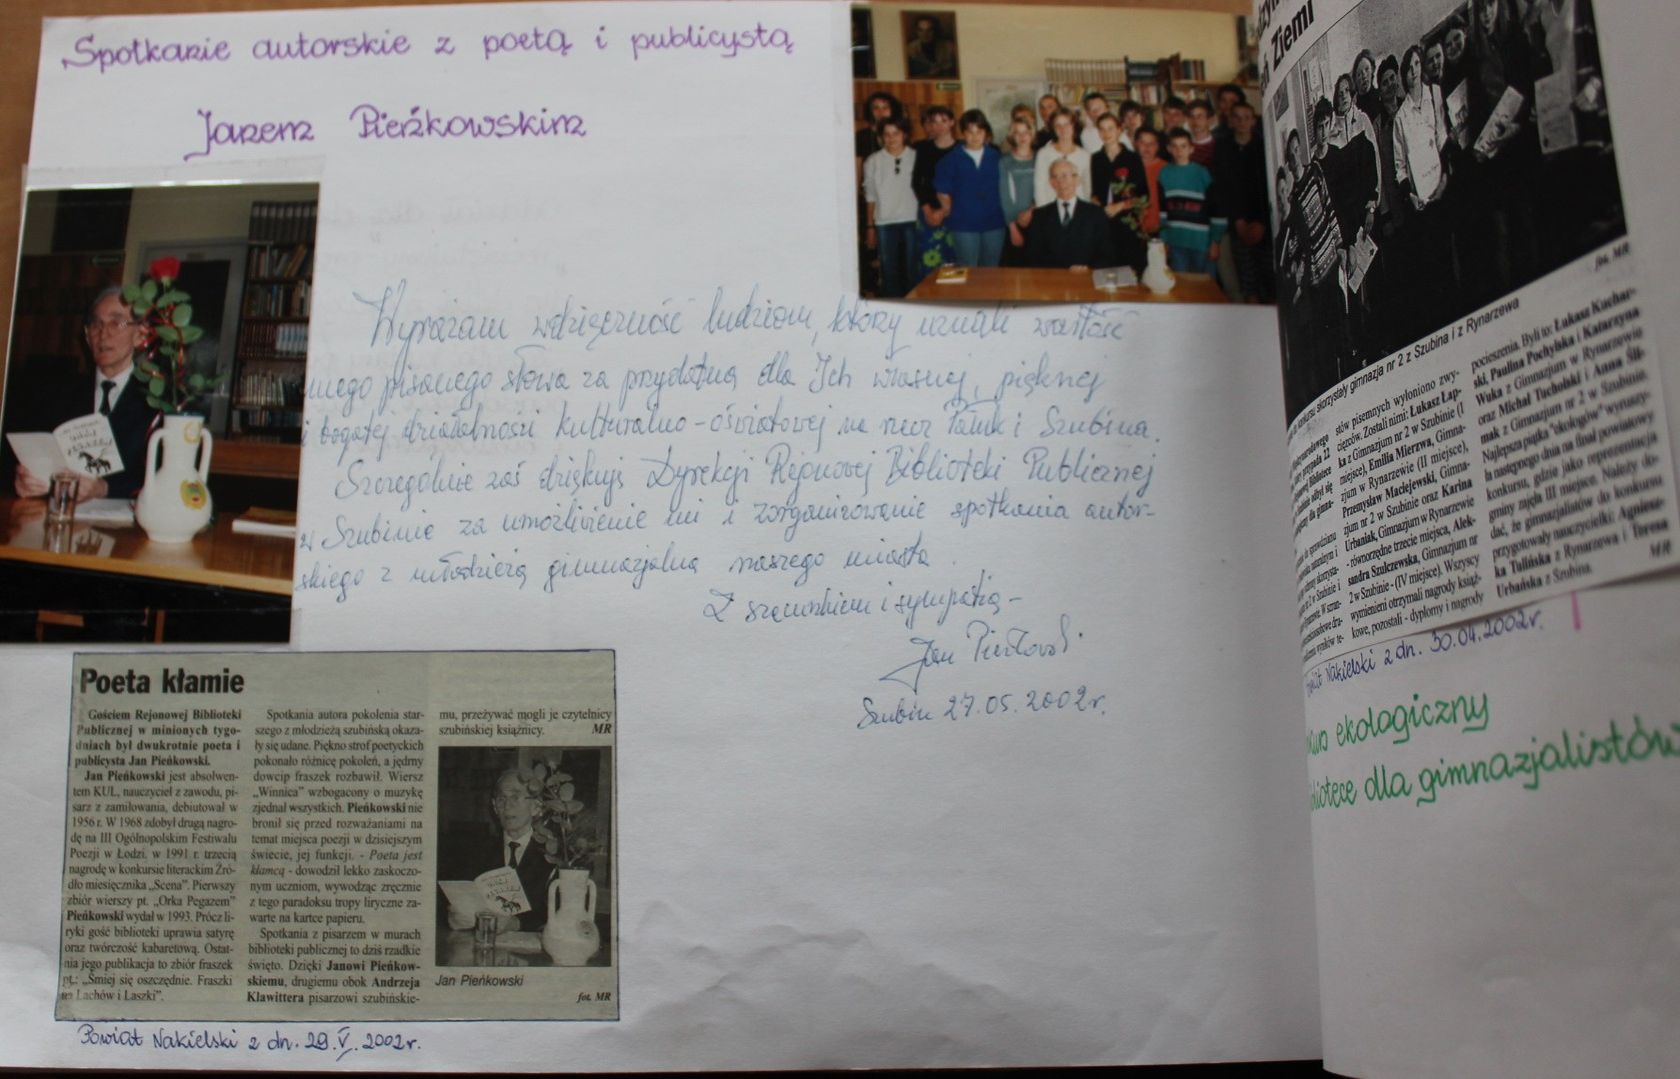 Spotkanie autorskie z poetą i publicystą
Janem Pieńkowskim
Wyrażam wdzięczność ludziom, którzy uznali wartość
mego pisanego słowa za przydatną dla Ich własnej, pięknej
i bogatej działalności kulturalno-oświatowej na rzecz Pałuk i Szubina.
Szczególnie zaś dziękuję Dyrekcji Rejonowej Biblioteki Publicznej
w Szubinie za umożliwienie mi i zorganizowanie spotkania autor-
skiego z młodzieżą gimnazjalną naszego miasta.
Z szacunkiem i sympatią -
Jan Pieńkowski
Szubin 27.05.2002r.
Poeta kłamie
Gościem Rejonowej Biblioteki
Publicznej w minionych tygo-
dniach był dwukrotnie poeta i
publicysta Jan Pieńkowski.
Jan Pieńkowski jest absolwen-
tem KUL, nauczyciel z zawodu, pi-
sarz z zamiłowania, debiutował w
1956 r. W 1968 zdobył drugą nagro-
dę na III Ogólnopolskim Festiwalu
Poezji w Łodzi, w 1991 r. trzecią
nagrodę w konkursie literackim Źró-
dło miesięcznika „Scena". Pierwszy
zbiór wierszy pt. „Orka Pegazem"
Pieńkowski wydał w 1993. Prócz li-
ryki gość biblioteki uprawia satyrę
oraz twórczość kabaretową. Ostat-
nia jego publikacja to zbiór fraszek
pt.: „Śmiej się oszczędnie. Fraszki
na Lachów i Laszki".
Spotkania autora pokolenia star-
szego z młodzieżą szubińską okaza-
ły się udane. Piękno strof poetyckich
pokonało różnicę pokoleń, a jędrny
dowcip fraszek rozbawił. Wiersz
„Winnica" wzbogacony o muzykę
zjednał wszystkich. Pieńkowski nie
bronił się przed rozważaniami na
temat miejsca poezji w dzisiejszym
świecie, jej funkcji. - Poeta jest
kłamcą - dowodził lekko zaskoczo-
nym uczniom, wywodząc zręcznie
z tego paradoksu tropy liryczne za-
warte na kartce papieru.
Spotkania z pisarzem w murach
biblioteki publicznej to dziś rzadkie
święto. Dzięki Janowi Pieńkow-
skiemu, drugiemu obok Andrzeja
Klawittera pisarzowi szubińskie-
mu, przeżywać mogli je czytelnicy
szubińskiej książnicy.
MR
Jan Pieńkowski
fot. MR
Powiat Nakielski z dn. 29.V.2002r.
Ziemi
fot. MR
konkursu skorzystały gimnazja nr 2 z Szubina i z Rynarzewa
stów pisemnych wyłoniono zwy-
cięzców. Zostali nimi: Łukasz Łap-
ka z Gimnazjum nr 2 w Szubinie (I
miejsce), Emilia Mierzwa, Gimna-
zjum w Rynarzewie (II miejsce),
Przemysław Maciejewski, Gimna-
zjum nr 2 w Szubinie oraz Karina
Urbaniak, Gimnazjum w Rynarzewie
- równorzędne trzecie miejsca, Alek-
sandra Szulczewska, Gimnazjum nr
2 w Szubinie - (IV miejsce). Wszyscy
wymienieni otrzymali nagrody książ-
kowe, pozostali - dyplomy i nagrody
pocieszenia. Byli to: Łukasz Kuchar-
ski, Paulina Pochylska i Katarzyna
Wuka z Gimnazjum w Rynarzewie
oraz Michał Tucholski i Anna
mak z Gimnazjum nr 2 w Szubinie.
Najlepsza piątka "ekologów" wyruszy-
ła następnego dnia na finał powiatowy
konkursu, gdzie jako reprezentacja
gminy zajęła III miejsce. Należy do-
dać, że gimnazjalistów do konkursu
przygotowały nauczycielki: Agniesz-
ka Tulińska z Rynarzewa i Teresa
Urbańska z Szubina.
MR
Powiat Nakielski z dn. 30.04.2002r.
ekologiczny
bliotece dla gimnazjalistów